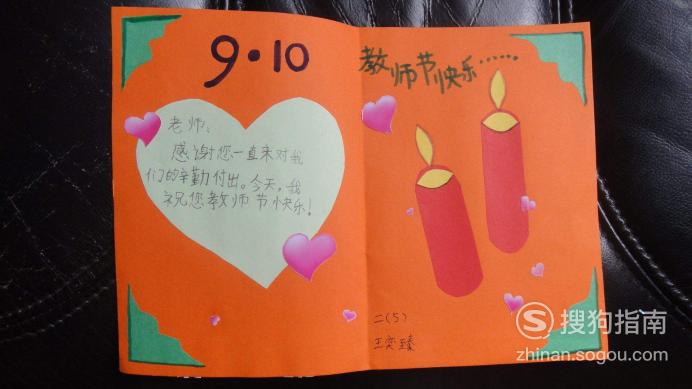 9·10
老师,
感谢您一直来对我
们的辛勤付出。今天,我
祝您教师节快乐!
教师节快乐……
二(5)
王奕臻
搜狗指南
zhinan.sogou.com